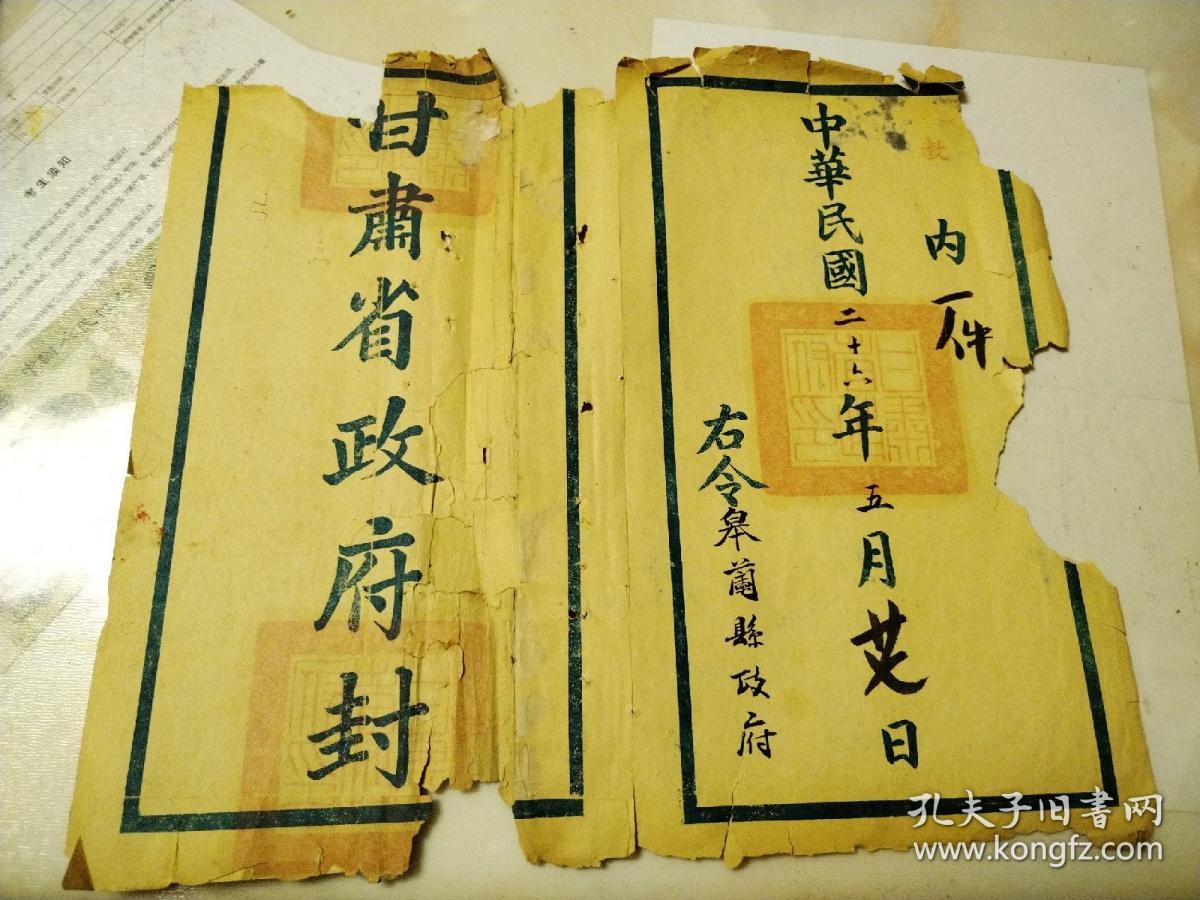 教
内一件
中華民國二十六年五月廿日
右令皋蘭縣政府
甘肅省政府封
考生须知
孔夫子旧书网
www.kongfz.com